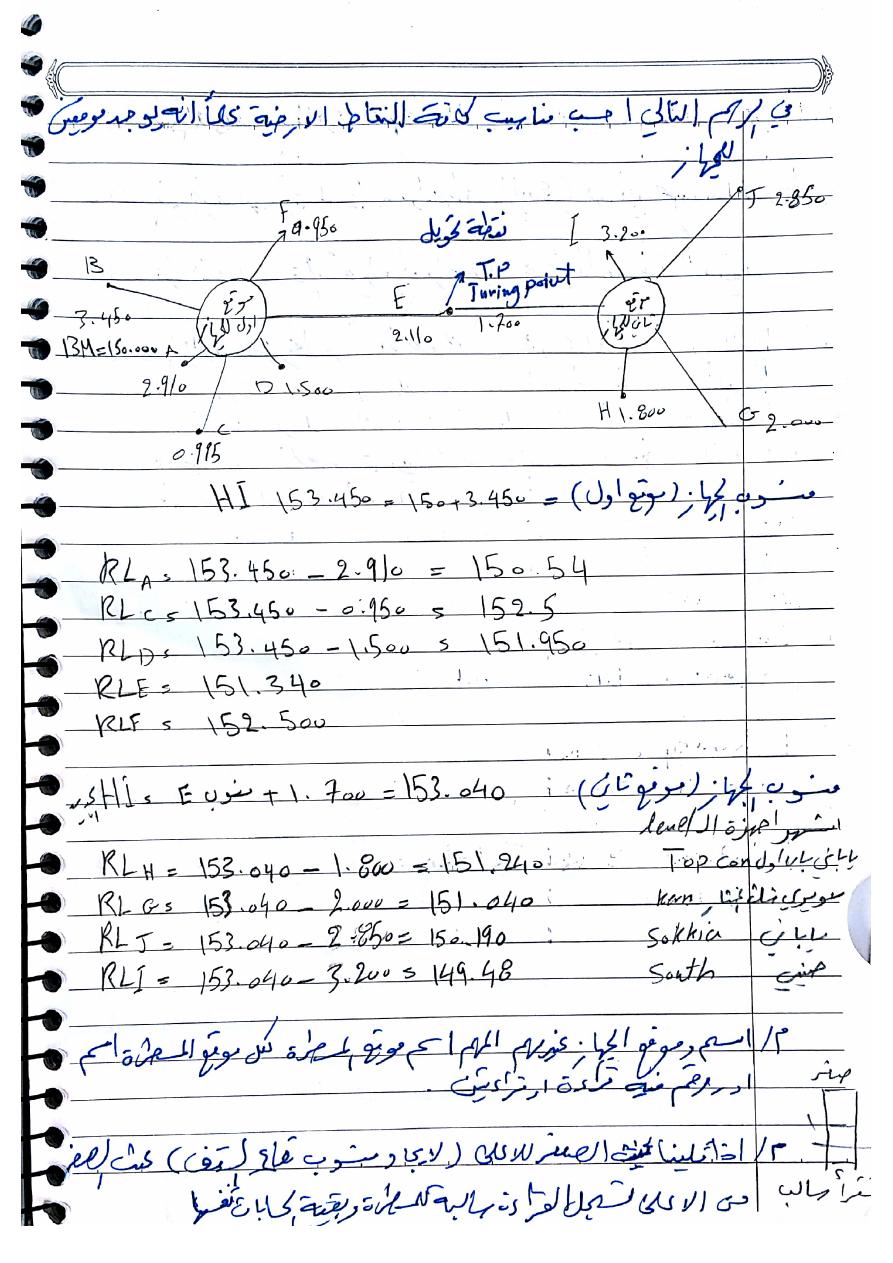 في الرسم التالي احسب مناسيب كافة النقاط الارضية علماً انه يوجد موقعين
للجهاز
J 2.850
F 0.950
نقطة تحويل
I 3.200
B
T.P
Turing point
موقع اول للجهاز
E
موقع ثاني للجهاز
3.450
2.110
1.700
BM=150.000 A
2.910
D 1.500
H 1.800
G 2.000
C
0.995
منسوب الجهاز (موقع اول) = 150+3.450 = 153.450 HI
RLA = 153.450 - 2.910 = 150.54
RLC = 153.450 - 0.950 = 152.5
RLD = 153.450 - 1.500 = 151.950
RLE = 151.340
RLF = 152.500
منسوب الجهاز (موقع ثاني) : HI = منسوب E + 1.700 = 153.040
اشهر اجهزة الـ level
RLH = 153.040 - 1.800 = 151.240
Topcon ياباني
RLG = 153.040 - 2.000 = 151.040
Kern سويسري
RLJ = 153.040 - 2.850 = 150.190
Sokkia ياباني
RLI = 153.040 - 3.200 = 149.48
South صيني
م/ اسم وموقع الجهاز غير مهم المهم اسم موقع المسطرة لكل موقع المسطرة اسم
او رقم فيه قراءة او قراءتين.
صفر
م/ اذا قلبنا الصفر للاعلى (لايجاد منسوب قاع السقف) بحيث الصفر
من الاعلى تسجل القراءة سالبة للمسطرة وبقية الحسابات نفسها
تقرأ سالب